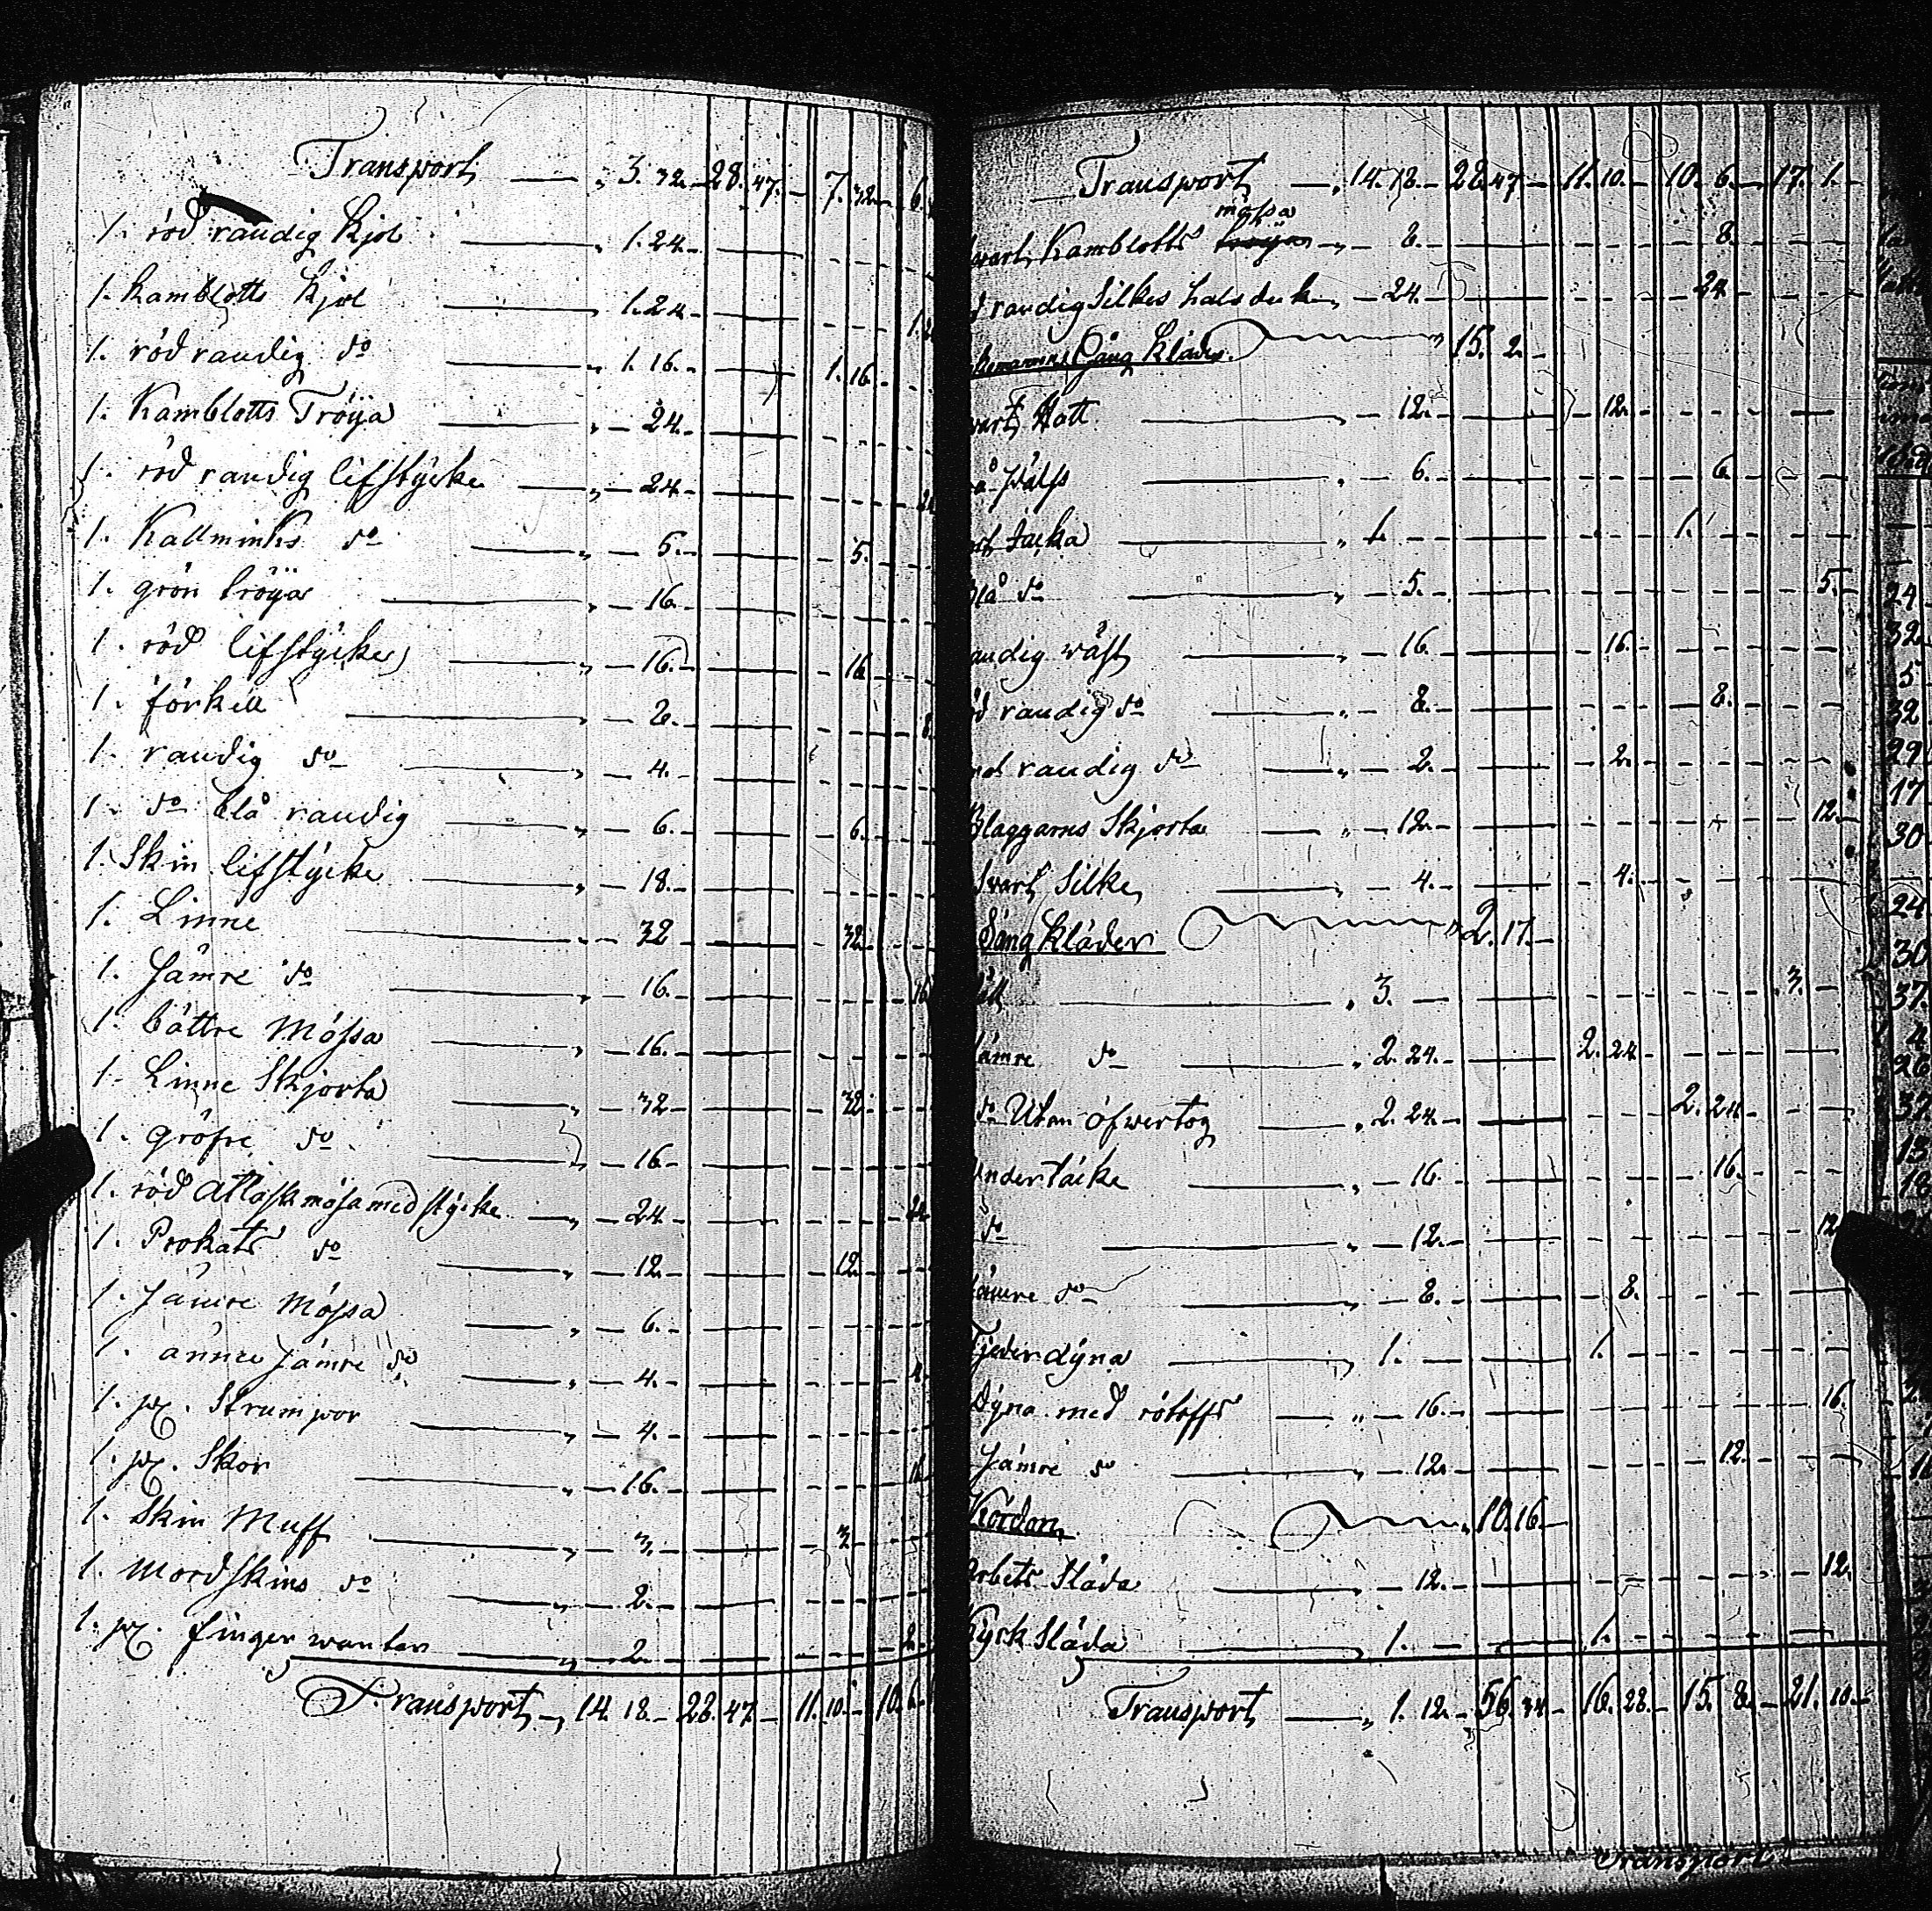 Transport — „ 3. 32. — 28. 47. — 7. 32. — 6.
1. röd randig Kjol — „ 1. 24.
1. Kamblotts Kjol — „ 1. 24. — 1.
1. röd randig do — „ 1. 16. — 1. 16.
1. Kamblotts Tröÿa — „ — 24.
1. röd randig lifstÿcke — „ — 24.
1. Kallminks do — „ — 5. — 5.
1. grön tröÿa — „ — 16.
1. röd lifstÿcke — „ — 16. — 16.
1. förkell — „ — 2.
1. randig do — „ — 4.
1. do blå randig — „ — 6. — 6.
1. Skin lifstÿcke — „ — 18.
1. Linne — „ — 32 — 32.
1. Sämre do — „ — 16. — 16
1. bättre Mössa — „ — 16.
1. Linne Skjorta — „ — 32 — 32.
1. gröfre do — „ — 16.
1. röd Atlask mösa med stÿcke — „ — 24 — 24
1. Prokats do — „ — 12 — 12.
1. Sämre Mössa — „ — 6.
1. ännu Sämre do — „ — 4. — 4.
1. pr. Strumpor — „ — 4.
1. pr. Skor — „ — 16.
1. Skin Muff — „ — 3. — 3
1. Mordskins do — „ — 2.
1. pr. finger wantar — „ — 2 — 2.
Transport — „ 14. 18. — 28. 47. — 11. 10. — 10. 6.
Transport — „ 14. 18. — 28. 47 — 11. 10. — 10. 6. — 17. 1.
wart Kamblotts tröÿa mössa „ — 8. — 8.
randig Silkes halsduk „ — 24. — 24
Gång Kläder „ 15. 2.
wart Hatt — „ — 12. — 12.
å Pälss — „ — 6. — 6.
Jacka — „ 1. — 1.
lå do — „ — 5. — 5.
andig wäst — „ — 16. — 16.
öd randig do — „ — 8. — 8.
randig do — „ — 2. — 2.
Blaggarns Skjorta — „ — 12. — 12.
Svart Silke — „ — 4. — 4.
Säng kläder „ 2. 17.
äll — „ 3. — 3.
ämre do — „ 2. 24. — 2. 24.
do Utan öfwertog — „ 2. 24. — 2. 24.
Undertäcke — „ — 16. — 16.
do — „ — 12. — 12
ämre do — „ — 8. — 8.
Fjederdÿna — „ 1. — 1.
Dÿna med — „ — 16. — 16.
Sämre do — „ — 12. — 12.
Kördon „ 10. 16.
Arbets Släda — „ — 12. — 12.
Kÿrk Släda — „ 1. — 1.
Transport — „ 1. 12. — 56. 34 — 16. 28. — 15. 8. — 21. 10.
Transport